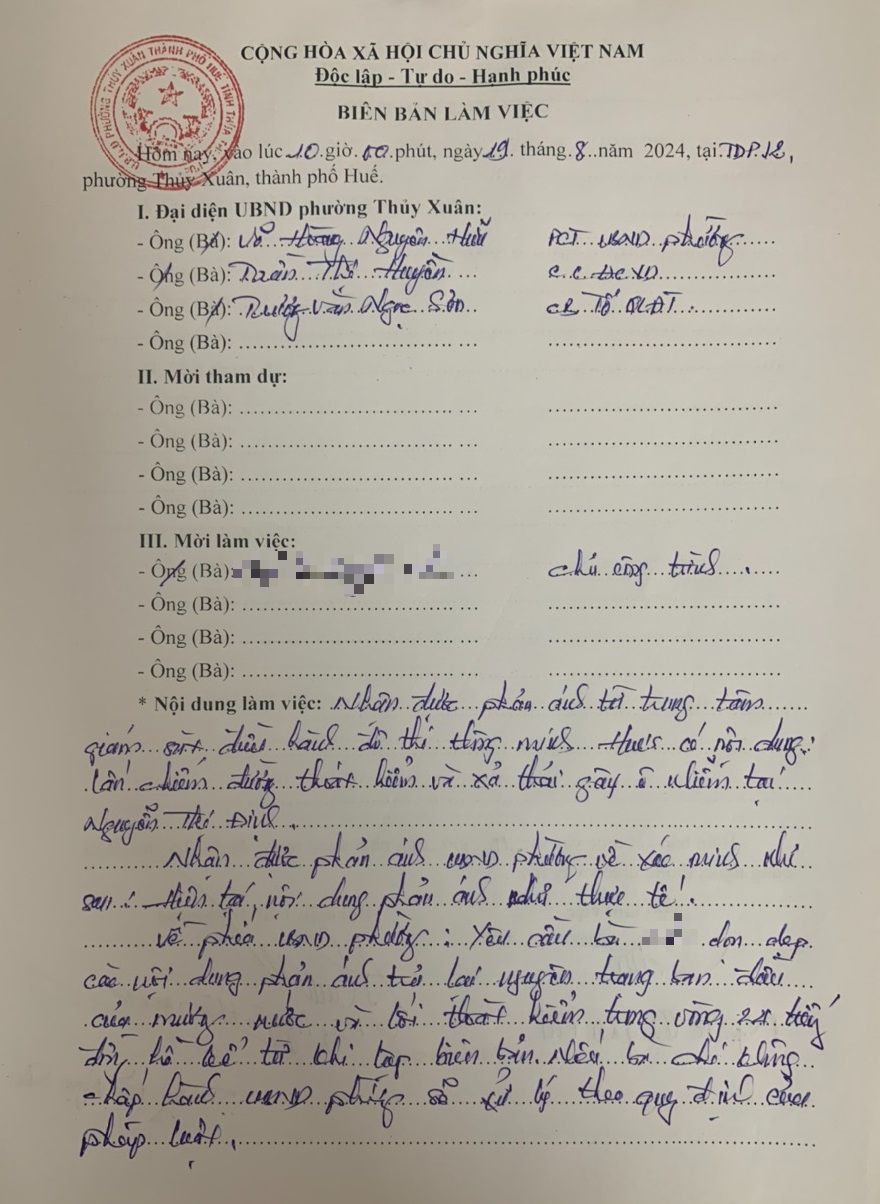 CỘNG HÒA XÃ HỘI CHỦ NGHĨA VIỆT NAM
Độc lập - Tự do - Hạnh phúc
BIÊN BẢN LÀM VIỆC
Hôm nay, vào lúc 10 giờ 00 phút, ngày 19 tháng 8 năm 2024, tại TDP 12,
phường Thủy Xuân, thành phố Huế.
I. Đại diện UBND phường Thủy Xuân:
- Ông (Bà): Võ Hoàng Nguyên Hữu PCT UBND phường
- Ông (Bà): Trần Thị Huyền C.C ĐCXD
- Ông (Bà): Trương Văn Ngọc Sơn CB Tổ QLĐT
- Ông (Bà):
II. Mời tham dự:
- Ông (Bà):
- Ông (Bà):
- Ông (Bà):
- Ông (Bà):
III. Mời làm việc:
- Ông (Bà): chủ công trình
- Ông (Bà):
- Ông (Bà):
- Ông (Bà):
* Nội dung làm việc: Nhận được phản ánh từ trung tâm
giám sát điều hành đô thị thông minh Huế có nội dung:
lấn chiếm đường thoát hiểm và xả thải gây ô nhiễm tại
Nguyễn Thị Định.
Nhận được phản ánh UBND phường về xác minh như
sau: Hiện tại nội dung phản ánh như thực tế.
Về phía UBND phường: Yêu cầu bà dọn dẹp
các nội dung phản ánh trả lại nguyên trạng ban đầu
của mương nước và lối thoát hiểm trong vòng 24 tiếng
đồng hồ kể từ khi lập biên bản. Nếu bà không
chấp hành UBND phường sẽ xử lý theo quy định của
pháp luật.